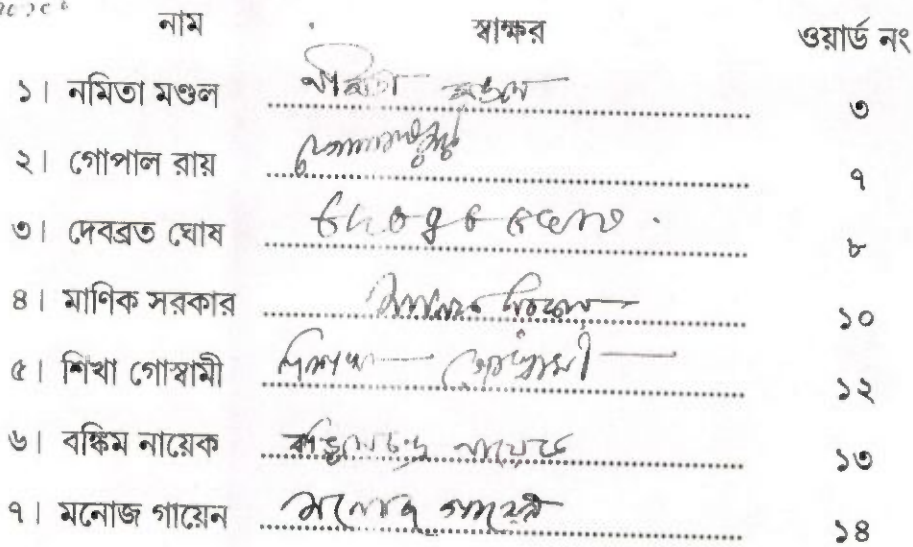 নাম স্বাক্ষর ওয়ার্ড নং
১। নমিতা মণ্ডল নমিতা মণ্ডল ৩
২। গোপাল রায় ৭
৩। দেবব্রত ঘোষ ৮
৪। মাণিক সরকার ১০
৫। শিখা গোস্বামী শিখা গোস্বামী ১২
৬। বঙ্কিম নায়েক বঙ্কিমচন্দ্র নায়েক ১৩
৭। মনোজ গায়েন মনোজ গায়েন ১৪